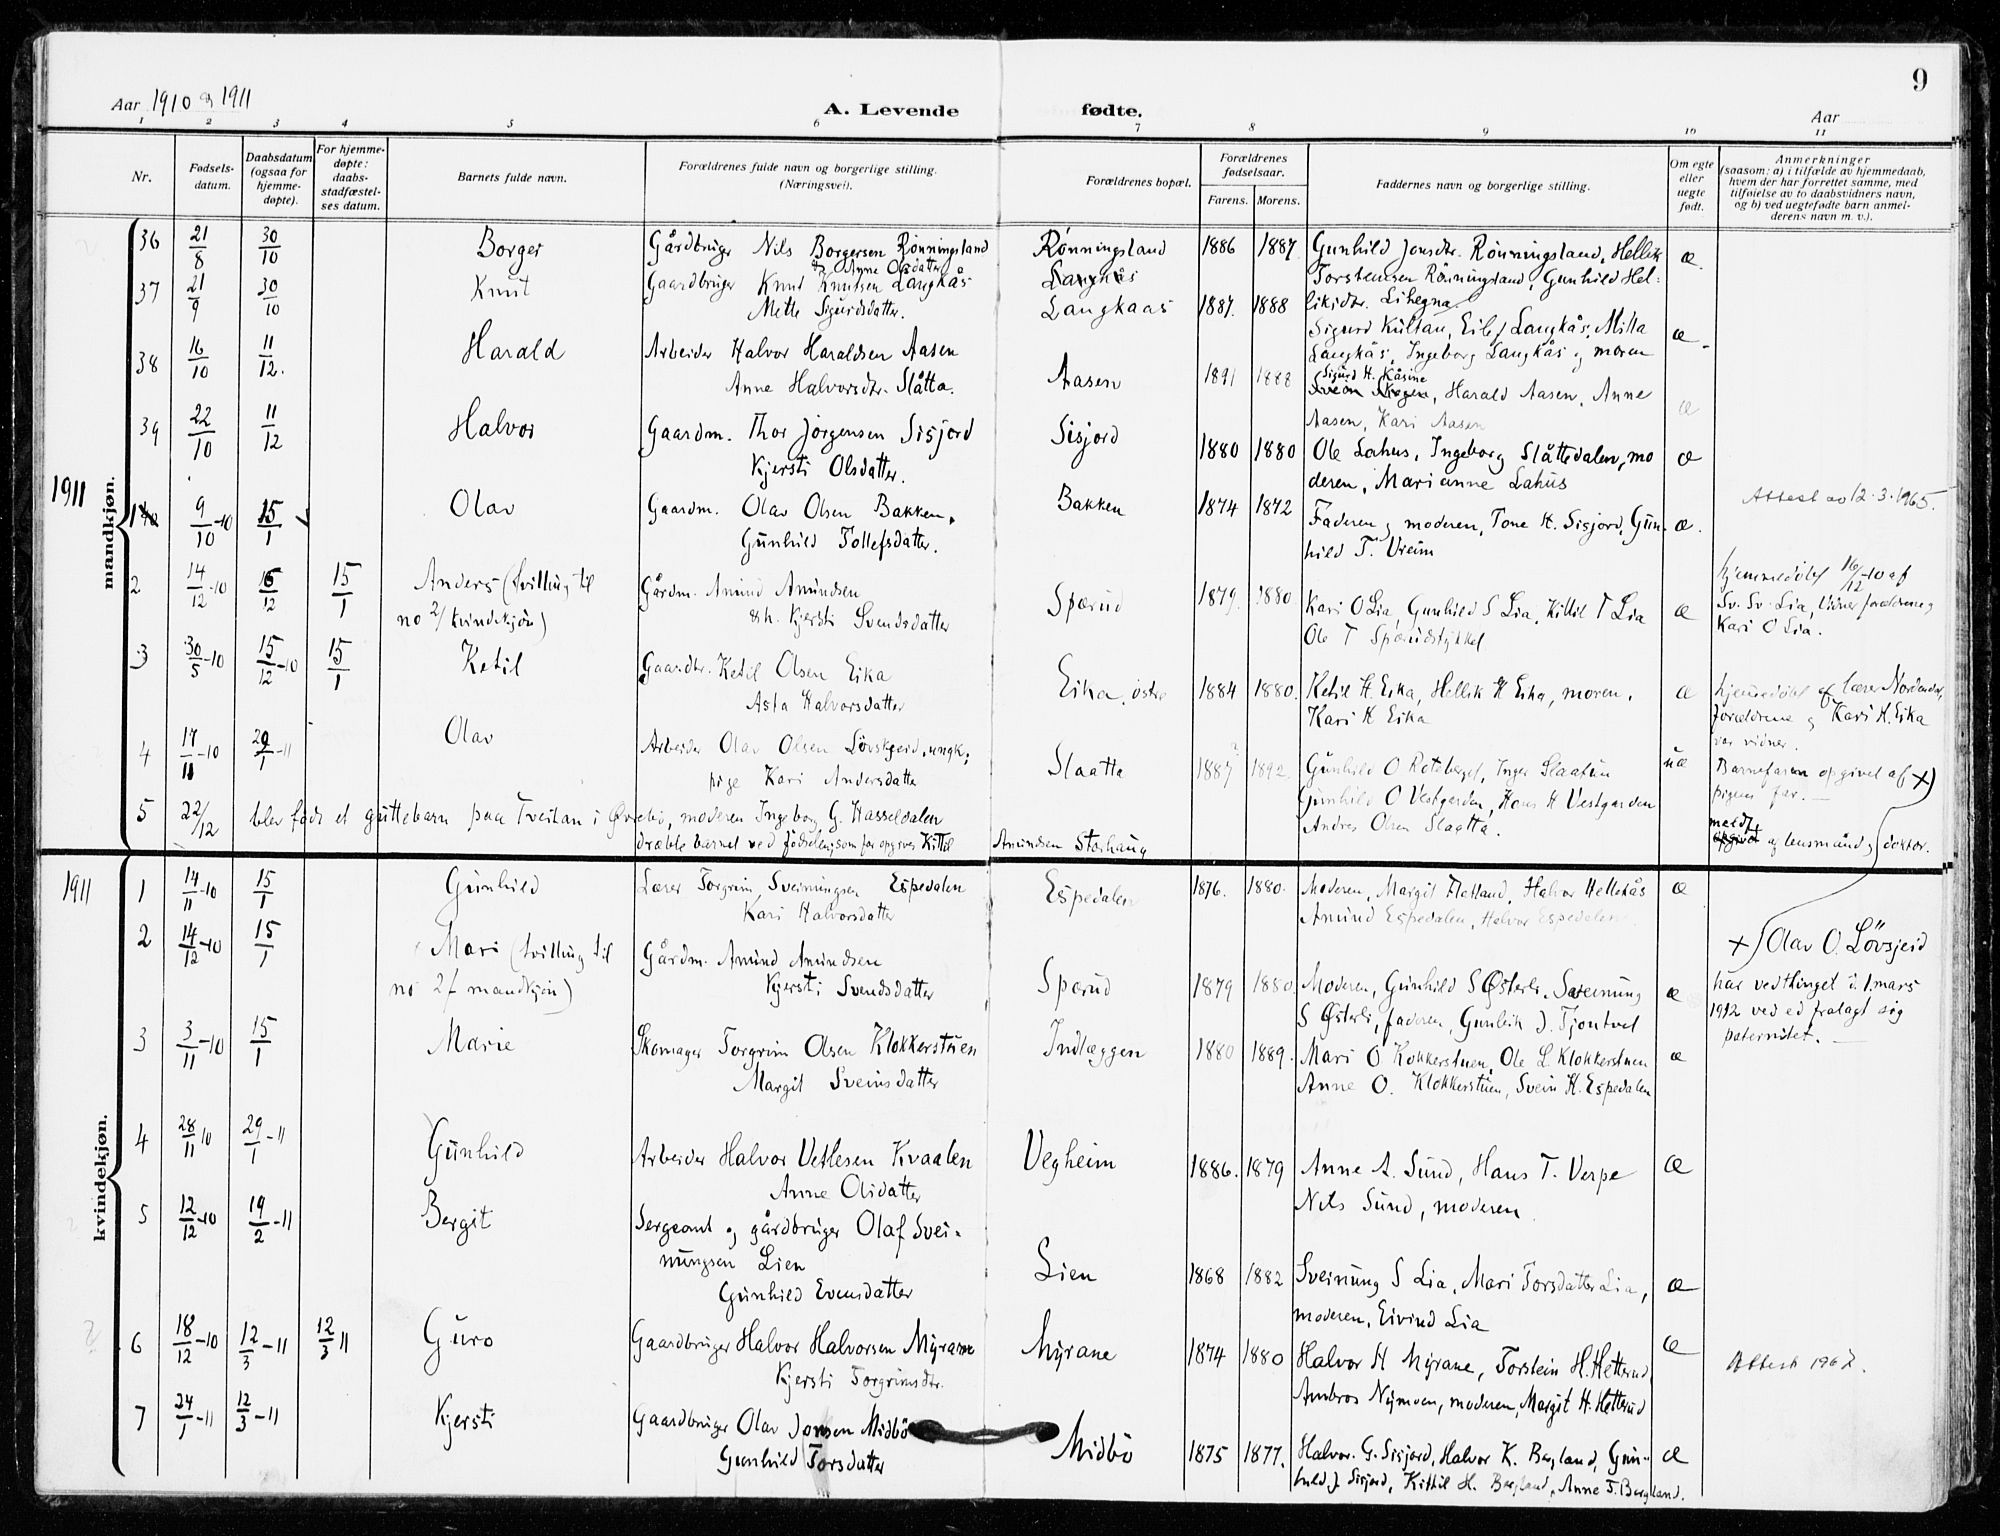 9
Aar 1910 og 1911
A. Levende fødte.
Aar
1 2 3 4 5 6 7 8 9 10 11
Nr.
Fødsels-
datum.
Daabsdatum
(ogsaa for
hjemme-
døpte).
For hjemme-
døpte:
daabs-
stadfæstel-
ses datum.
Barnets fulde navn.
Forældrenes fulde navn og borgerlige stilling.
(Næringsvei).
Forældrenes bopæl.
Forældrenes
fødselsaar.
Farens. Morens.
Faddernes navn og borgerlige stilling.
Om egte
eller
uegte
født.
Anmerkninger
(saasom: a) i tilfælde av hjemmedaab,
hvem der har forrettet samme, med
tilføielse av to daabsvidners navn,
og b) ved uegtefødte barn anmel-
derens navn m. v.).
mandkjøn.
36 21/8 30/10 Borger Gårdbruger Nils Borgersen Rønningsland Rønningsland 1886 1887 Gunhild Jonsdtr. Rønningsland, Hellik æ.
& Anne Olsdatter Torstensen Rønningsland, Gunhild Hel-
37 21/9 30/10 Knut Gaardbruger Knut Knutsen Langkås Langkås
Mette Sigurdsdatter. Langkaas 1887. 1888 likidtr. Lihegna.
Sigurd Kultan, Eilef Langkås, Mitta æ
Langkås, Ingeborg Langkås og moren
38 16/10 11/12. Harald Arbeider Halvor Haraldsen Aasen
Anne Halvorsdtr. Slåtta. Aasen 1891 1888 Sigurd H. Kåsine
Svein Skogen, Harald Aasen, Anne æ
Aasen, Kari Aasen
39 22/10 11/12 Halvor Gaardm. Thor Jörgensen Sisjord Sisjord
Kjersti Olsdatter. 1880 1880 Ole Lahus, Ingeborg Slåttedalen, mo æ
deren, Marianne Lahus
1911
1 9/10-10 15/1 Olav Gaardm. Olav Olsen Bakken, Bakken 1874 1872 Attest av 12.3.1965.
Gunhild Tollefsdatter. Faderen og moderen, Tone H. Sisjord, Gun- æ.
hild T. Vreim
2 14/12-10 16/12 15/1 Anders (tvilling til Gårdm. Amund Amundsen Sperud 1879 1880 Kari O Lia, Gunhild S Lia, Kittil T Lia æ
no 2/ kvindekjøn) & h. Kjersti Svendsdatter Ole T Sperudstykket
hjemmedøbt 16/12-10 af
Sv. Sv. Lia, vidner forældrene og
Kari O Lia.
3 30/5-10 15/12-10 15/1 Ketil Gaardbr. Ketil Olsen Eika Eika østre 1884 1880. Ketil H. Eika, Hellik H Eika, moren, æ
Asta Halvorsdatter Kari H Eika
hjemmedøbt af lærer Nordendal,
forældrene og Kari H. Eika
var vidner.
4 17/11-10 29/1-11 Olav Arbeider Olav Olsen Lövskjeid, ungk: Slaatta 1887 1892. Gunhild O Roteberget, Inger Slaatun uæ
pige Kari Andersdatter Gunhild O Vestgarden, Hans H Vestgarden
Andres Olsen Slaatta.
Barnefaren opgivet af x)
pigens far.
5 22/12 blev født et guttebarn paa Tveitan i Øvrebö, moderen Ingeborg G. Hasseldalen
dræbte barnet ved fødselen, som far opgives Kittil Amundsen Storhaug
meldt
opgivet og lensmand og doktor.
1911
kvindekjøn.
1 14/11-10 15/1 Gunhild Lærer Torgrim Sveinungsen Espedalen Espedalen 1876. 1880. Moderen, Margit Flatland, Halvor Hellekås æ
Kari Halvorsdatter Amund Espedalen, Halvor Espedalen
2 14/12-10 15/1 Mari (tvilling til Gårdm. Amund Amundsen Sperud 1879 1880. Moderen, Gunhild S Østerli, Sveinung æ
no 2/ mandkjøn) Kjersti Svendsdatter S Østerli, faderen, Gunleik J. Tjontvet
x) Olav O. Lövsjeid
har ved thinget d. 1. mars
1912 ved ed fralagt sig
paternitet.
3 3/11-10 15/1 Marie Skomager Torgrim Olsen Klokkerstuen Indlæggen 1880 1889. Mari O Klokkerstuen, Ole L Klokkerstuen æ
Margit Sveinsdatter Anne O. Klokkerstuen, Svein H. Espedalen
4 28/11 10 29/1-11 Gunhild Arbeider Halvor Vetlesen Kvaalen Vegheim 1886. 1879 Anne A. Sund, Hans T. Verpe æ
Anne Olsdatter Nils Sund, moderen
5 12/12-10 19/2-11 Bergit Sergeant og gårdbruger Olaf Svei-
nungsen Lien Lien 1868 1882 Sveinung S Lia, Mari Torsdatter Lia, æ
Gunhild Evensdatter moderen, Eivind Lia
6 18/12-10 12/3-11 12/3 11 Guro Gaardbruger Halvor Halvorsen Myrane Myrane 1874 1880 Halvor H Myrane, Torstein H. Hetterud, æ
Kjersti Torgrimsdtr. Ambros Nymoen, moderen, Margit H. Hetterud
Attest 1967.
7 24/1-11 12/3-11 Kjersti Gaardbruger Olav Jonsen Midbö Midbö 1875 1877. Halvor G. Sisjord, Halvor K. Bergland, Gun- æ
Gunhild Torsdatter hild J. Sisjord, Kittil H. Bergland, Anne T. Bergland.